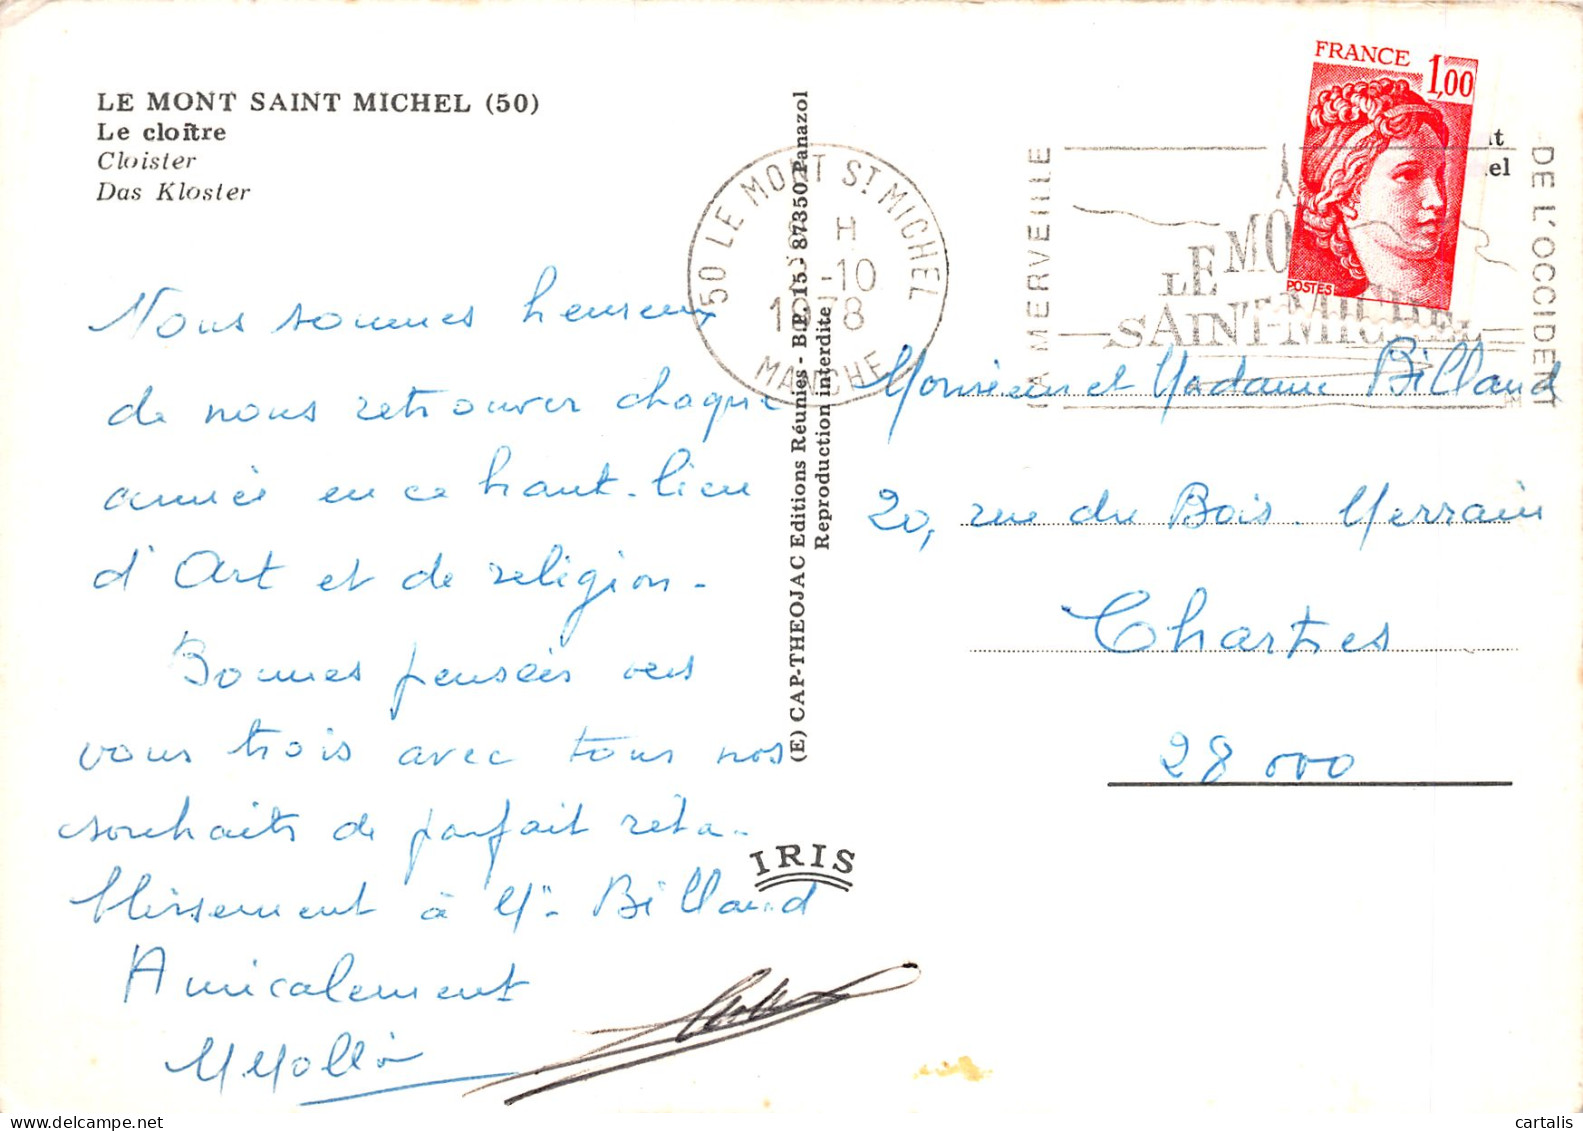 LE MONT SAINT MICHEL (50)
Le cloître
Cloister
Das Kloster
Nous sommes heureux
de nous retrouver chaque
année en ce haut-lieu
d'Art et de religion-
Bonnes pensées vers
vous trois avec tous nos
souhaits de parfait réta-
blissement à Mr Billand
Amicalement
(E) CAP-THEOJAC Editions Réunies - B.P. 15 - 87350 Panazol
Reproduction interdite
IRIS
50 LE MONT ST MICHEL
H
-10
1978
MANCHE
LA MERVEILLE
LE MO
SAINT-MICHEL
DE L'OCCIDENT
FRANCE
1,00
POSTES
t
el
Monsieur et Madame Billand
20, rue du Bois-Merrain
Chartres
28000
cartalis